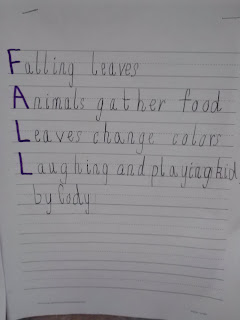 Falling leaves
Animals gather food
Leaves change colors
Laughing and playing kid
by Cody